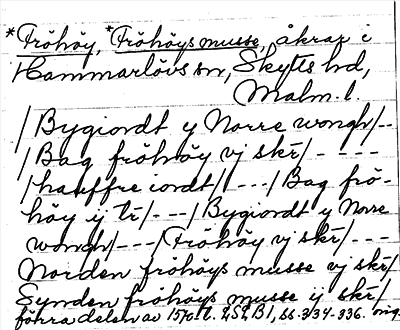 *Fröhöy, *Fröhöys musse, åkrar i
Hammarlövs sn, Skytts hd,
Malm. l.
/Bygiordt y Norre wongh/--
/Bag fröhöy vj skr/- - - -
/hauffre iordt/ /---/Bag frö-
höy ij tr/---/Bygiordt y Norre
wongh/---/Fröhöy vj skr/---
Norden fröhöys musse vj skr/
Synden fröhöys musse ij skr/
förra delen av 1570 t.